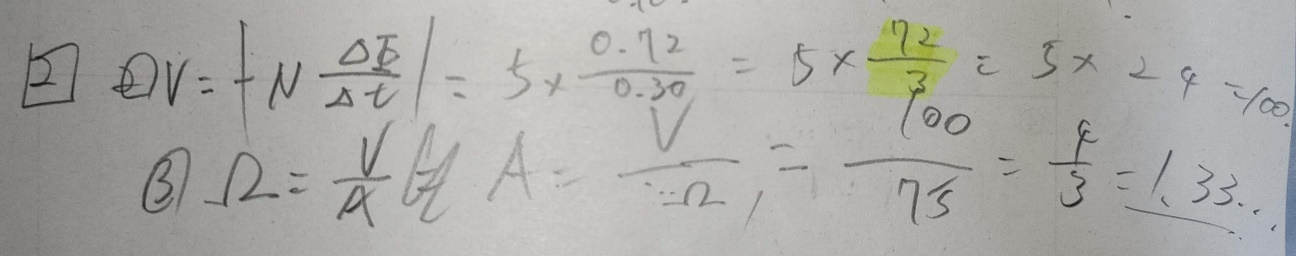 [2] ② V = |-N ΔΦ/Δt| = 5 × 0.72/0.30 = 5 × 72/3 = 5 × 24 = 100.
③ Ω = V/A A = V/Ω, = 100/75 = 4/3 = 1.33...